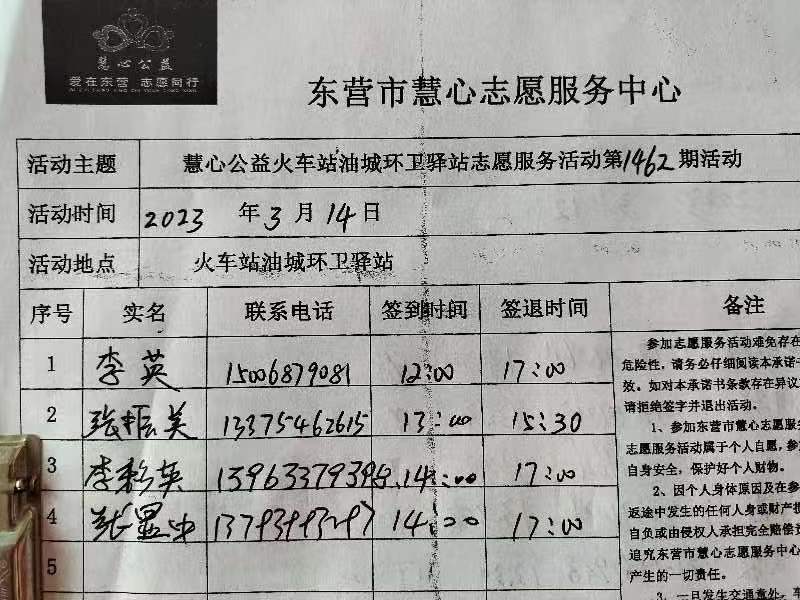 慧心公益
爱在东营 志愿同行
东营市慧心志愿服务中心
活动主题 慧心公益火车站油城环卫驿站志愿服务活动第1462期活动
活动时间 2023 年 3 月 14 日
活动地点 火车站油城环卫驿站
序号 实名 联系电话 签到时间 签退时间 备注
1 李英 15006879081 12:00 17:00
2 张振美 13375462615 13:00 15:30
3 李彩英 14:00 17:00
4 14:00 17:00
5
参加志愿服务活动难免存在
危险性,请务必仔细阅读本承诺书
效。如对本承诺书条款存在异议
请拒绝签字并退出活动。
1、参加东营市慧心志愿服务
志愿服务活动属于个人自愿,参
自身安全,保护好个人财物。
2、因个人身体原因及在参
返途中发生的任何人身或财产损
自负或由侵权人承担完全赔偿
追究东营市慧心志愿服务中心
产生的一切责任。
3、一旦发生交通意外,车